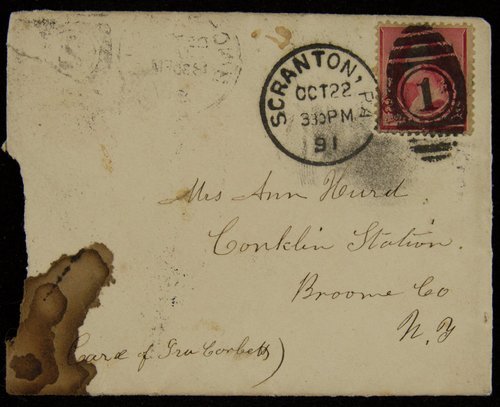 SCRANTON, PA
OCT 22
330PM
91
1
Mrs Ann Hurd
Conklin Station.
Broome Co
N.Y
Care of Ira Corbett)